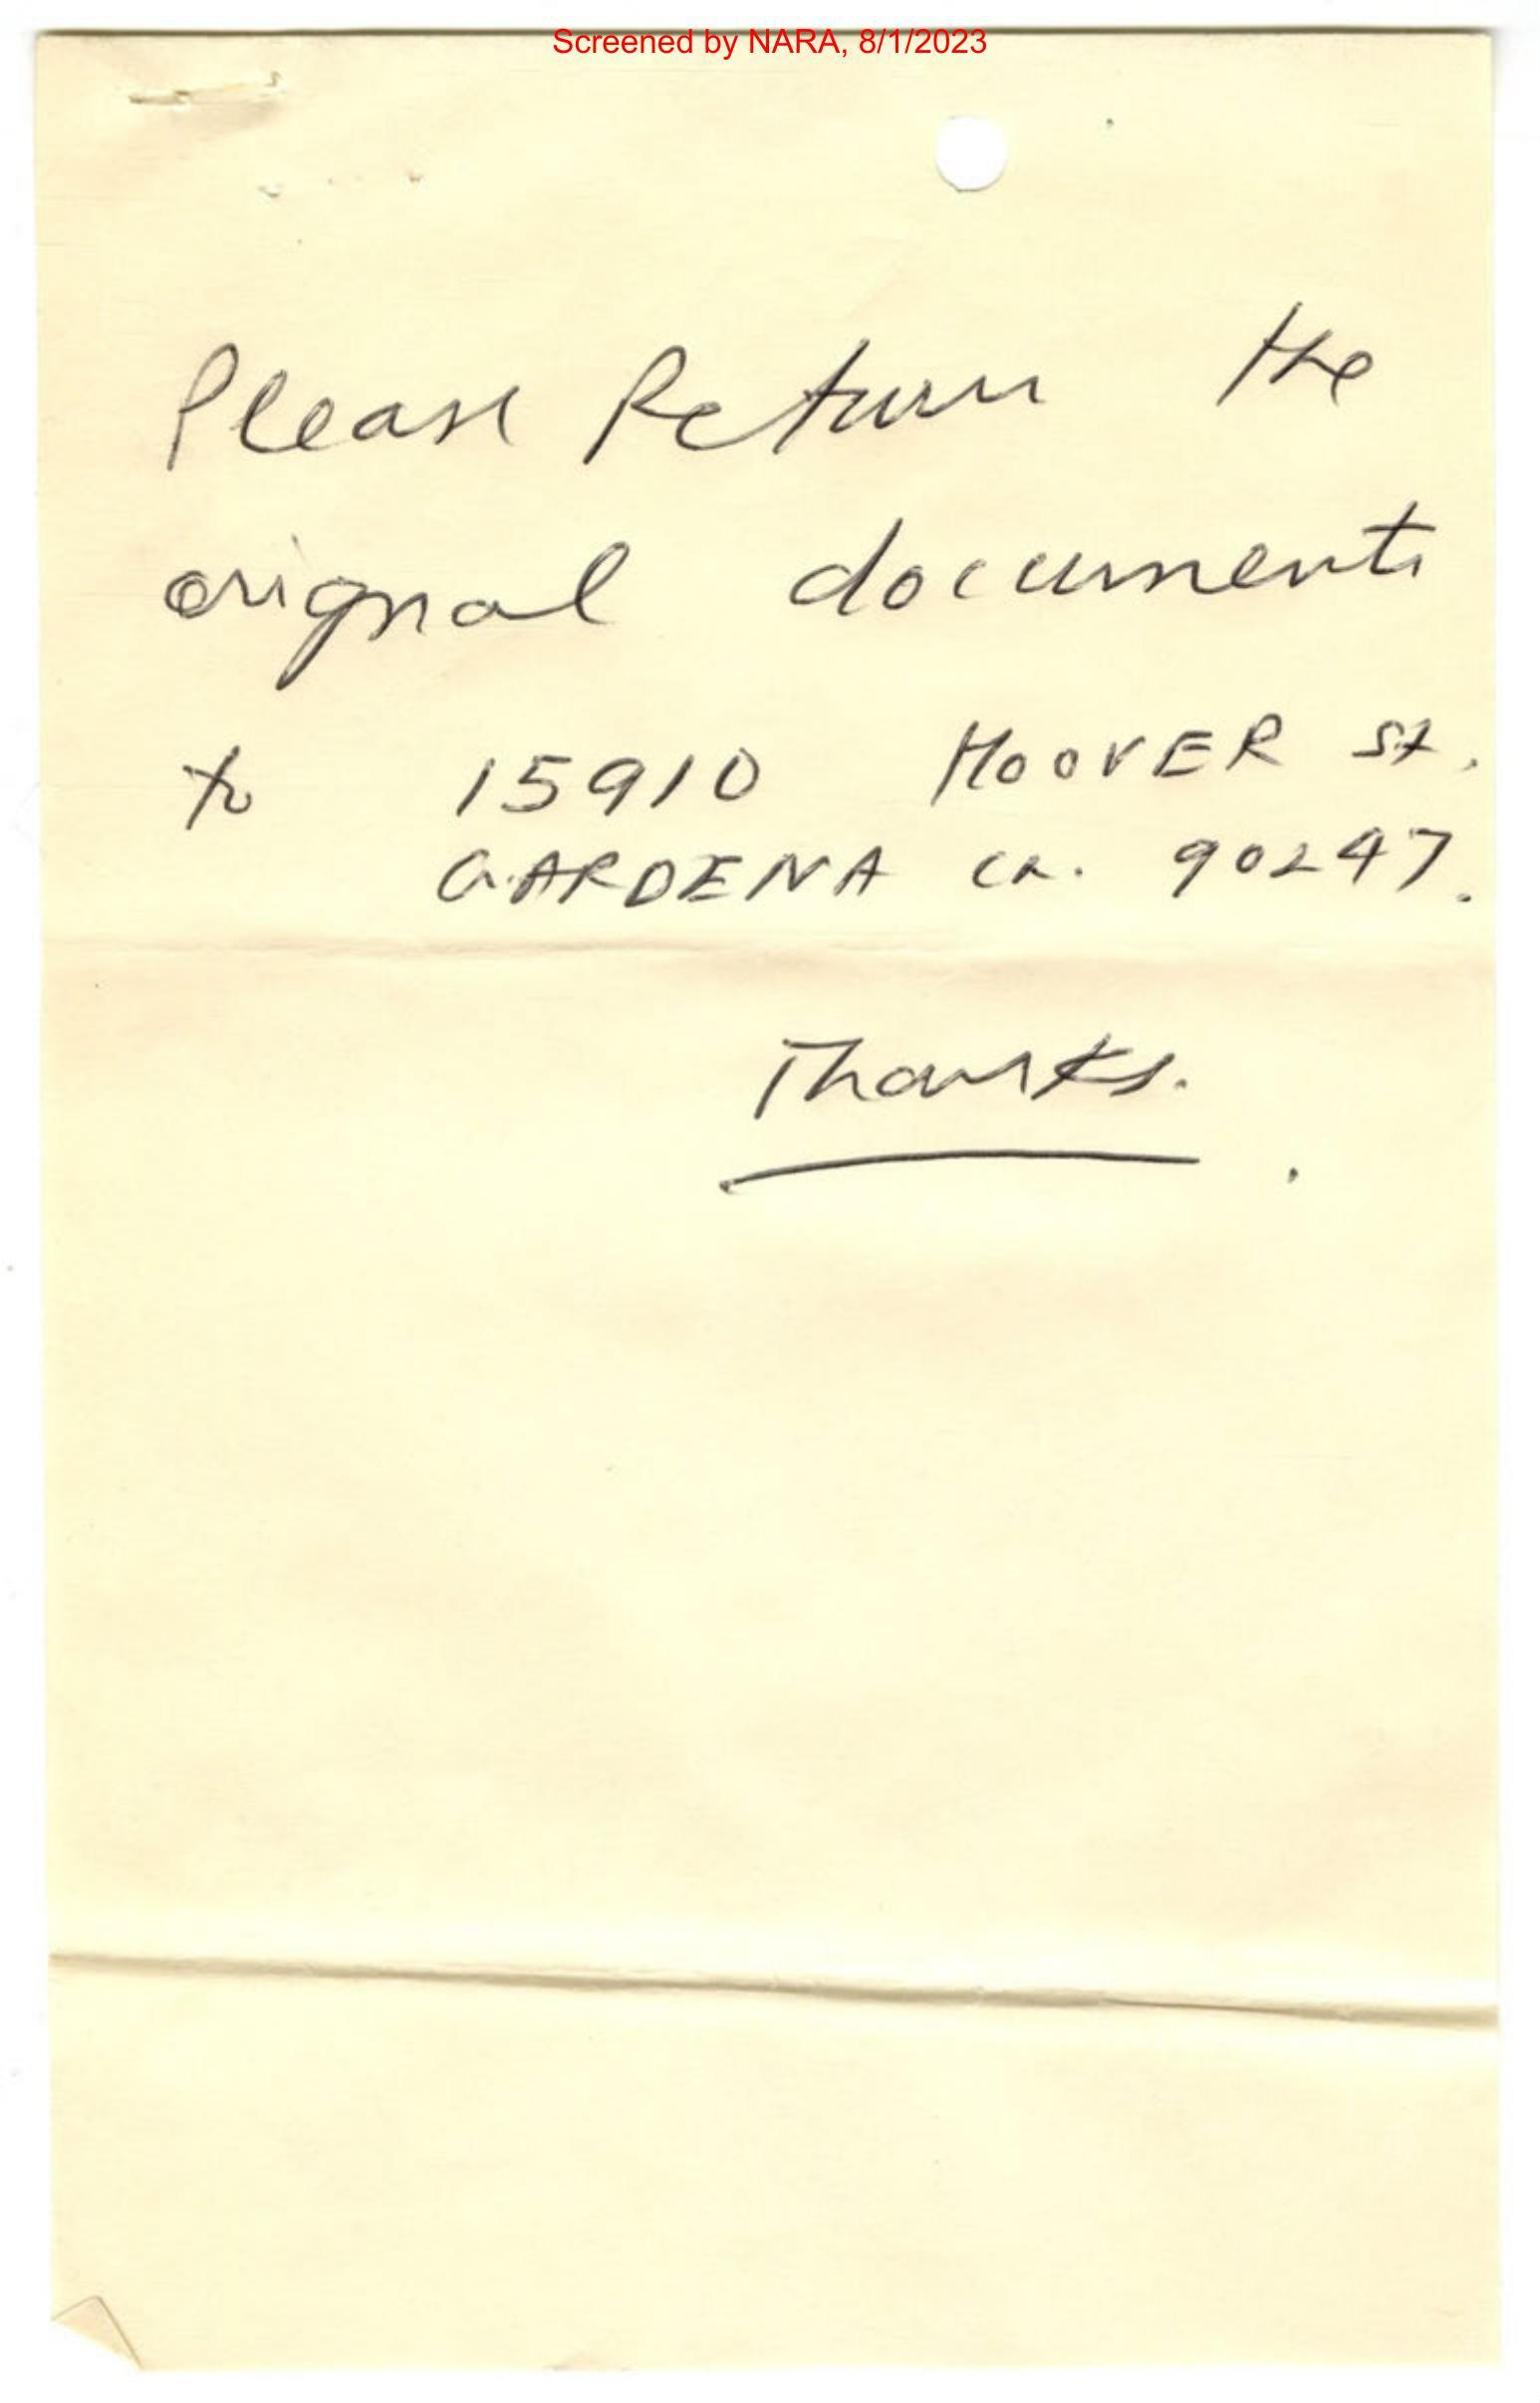 Screened by NARA, 8/1/2023
Please Return the
orignal documents
to 15910 HOOVER St.
GARDENA CA. 90247.
Thanks.